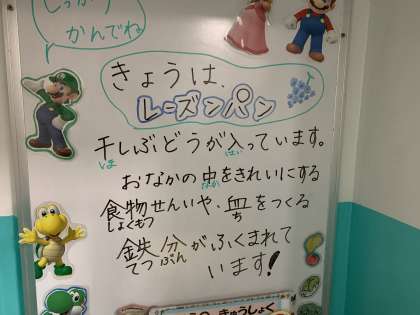 しっかり
かんでね
きょうは、
レーズンパン
干しぶどうが入っています。
ほ
はい
おなかの中をきれいにする
なか
食物せんいや、血をつくる
しょくもつ
ち
鉄分がふくまれて
てつぶん
います!
きゅうしょく